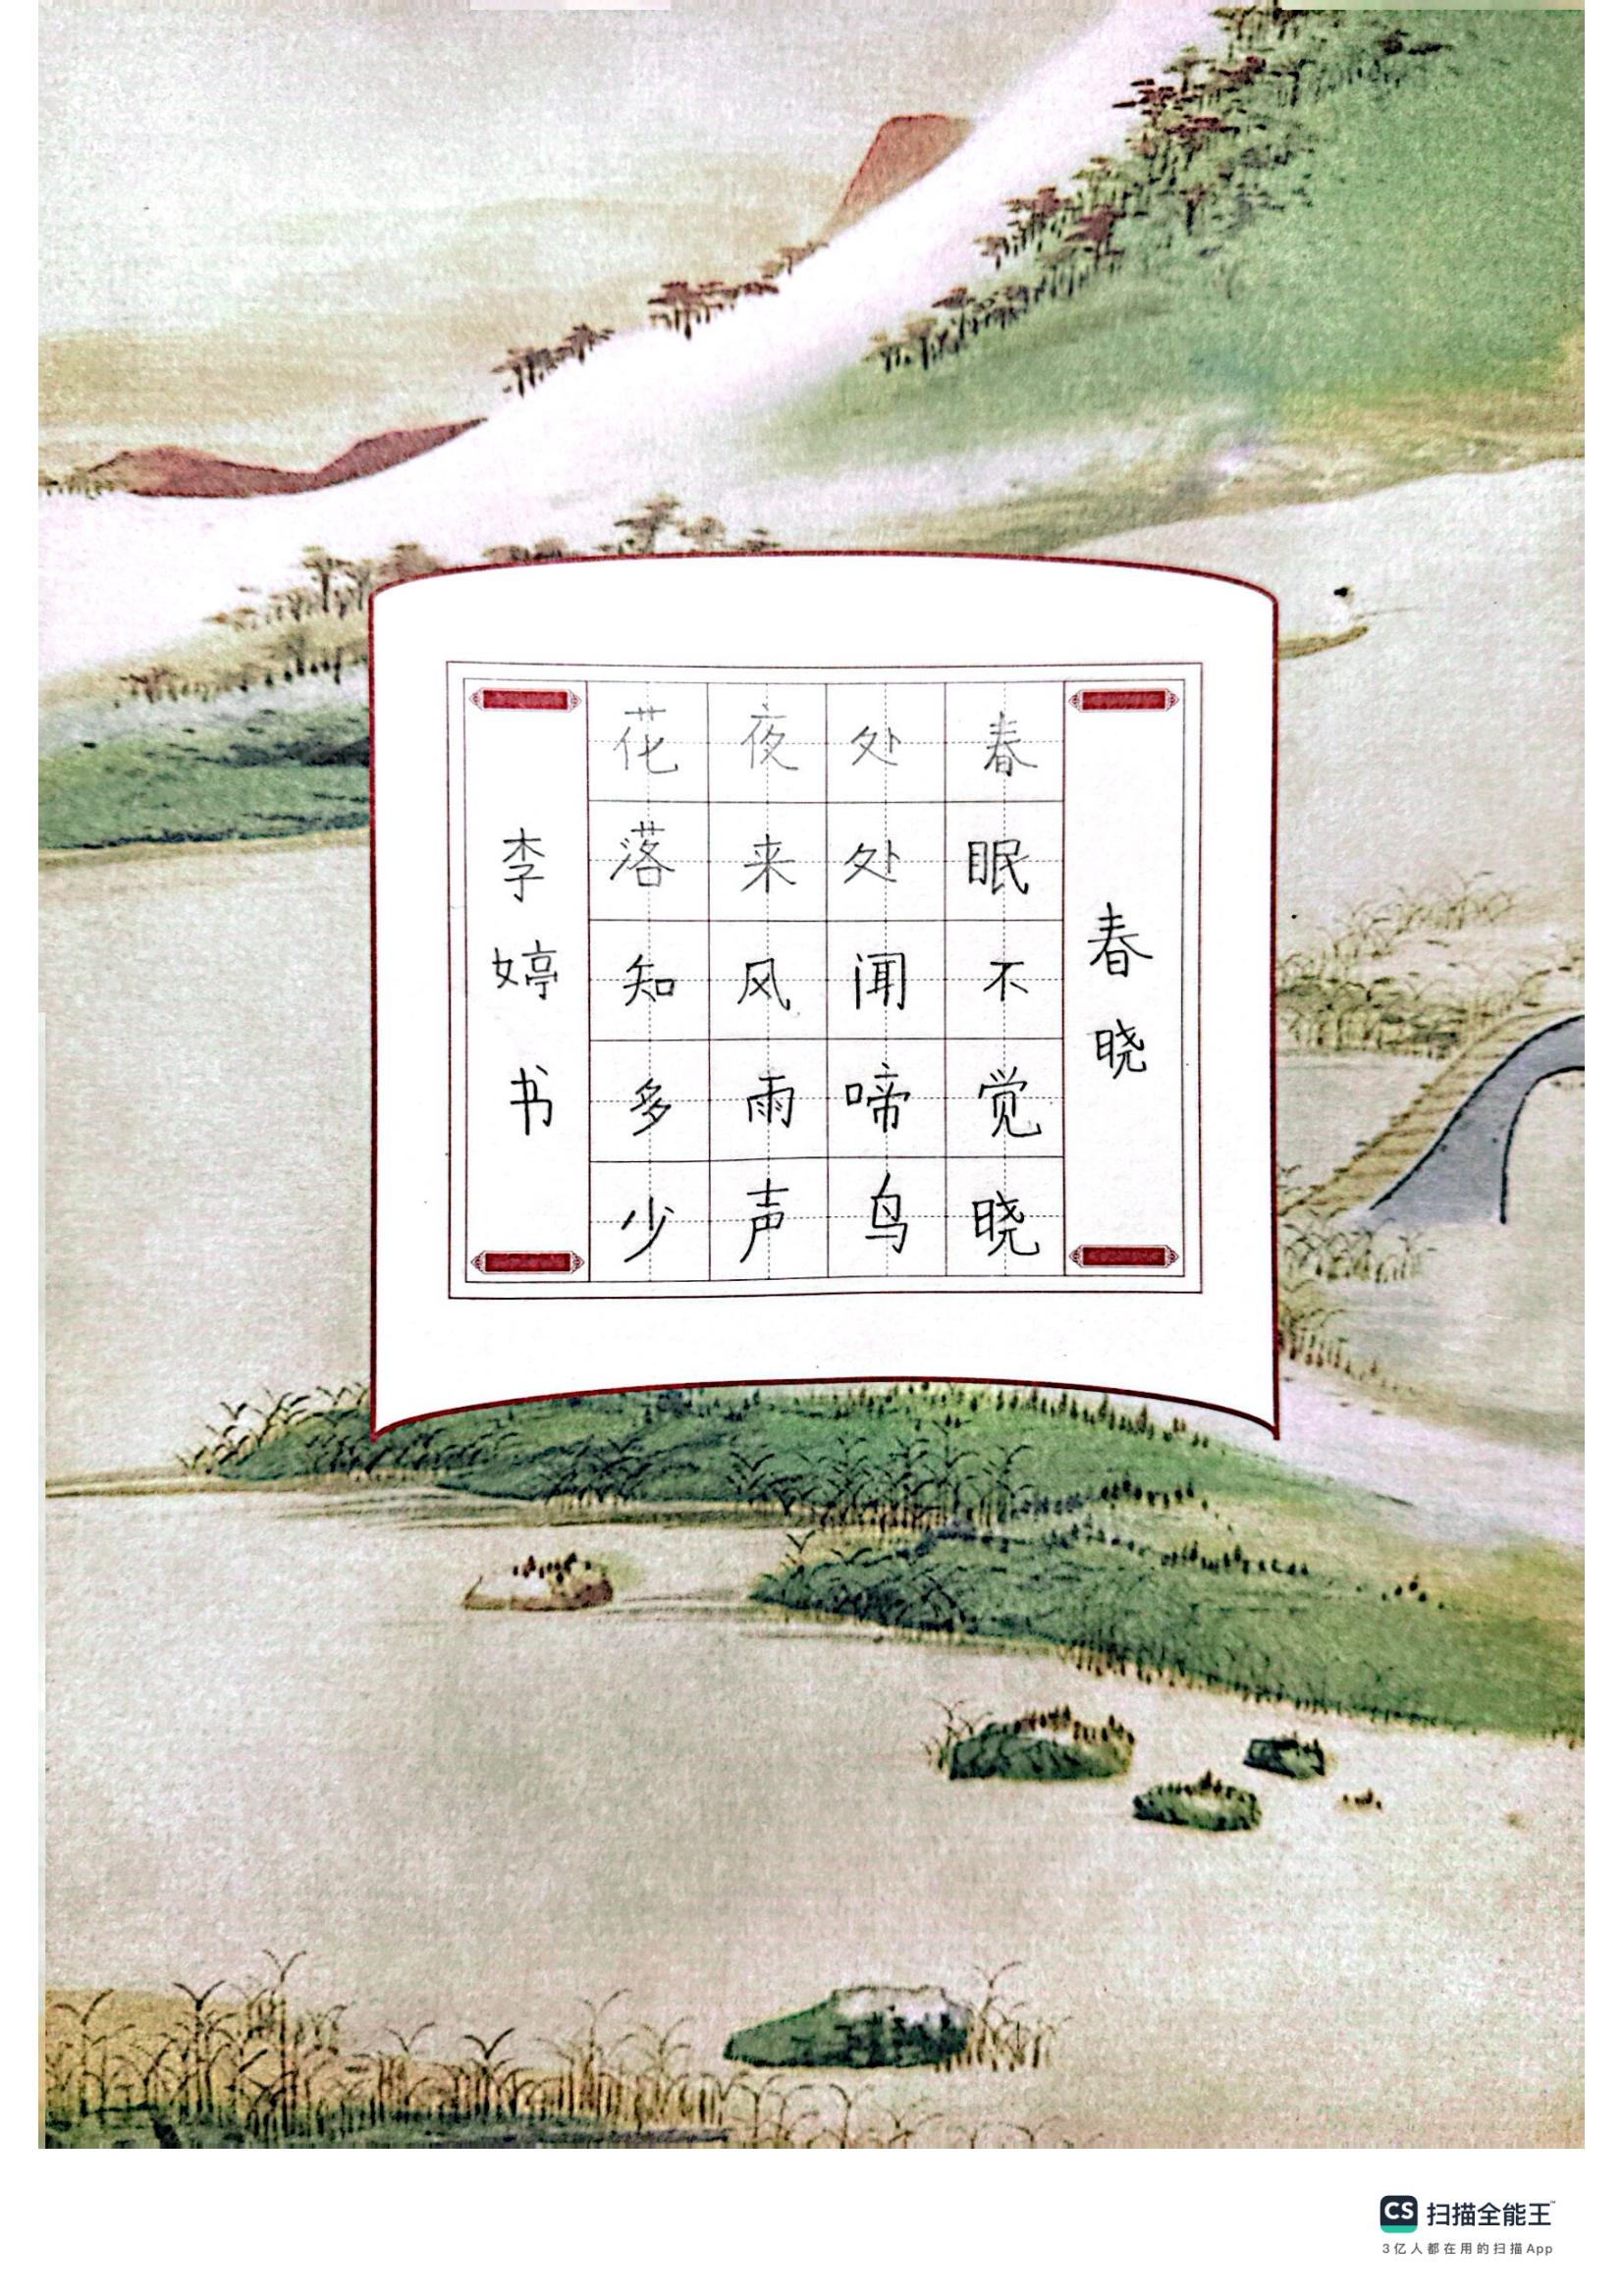 春晓
春眠不觉晓
处处闻啼鸟
夜来风雨声
花落知多少
李婷书
CS 扫描全能王™
3亿人都在用的扫描App